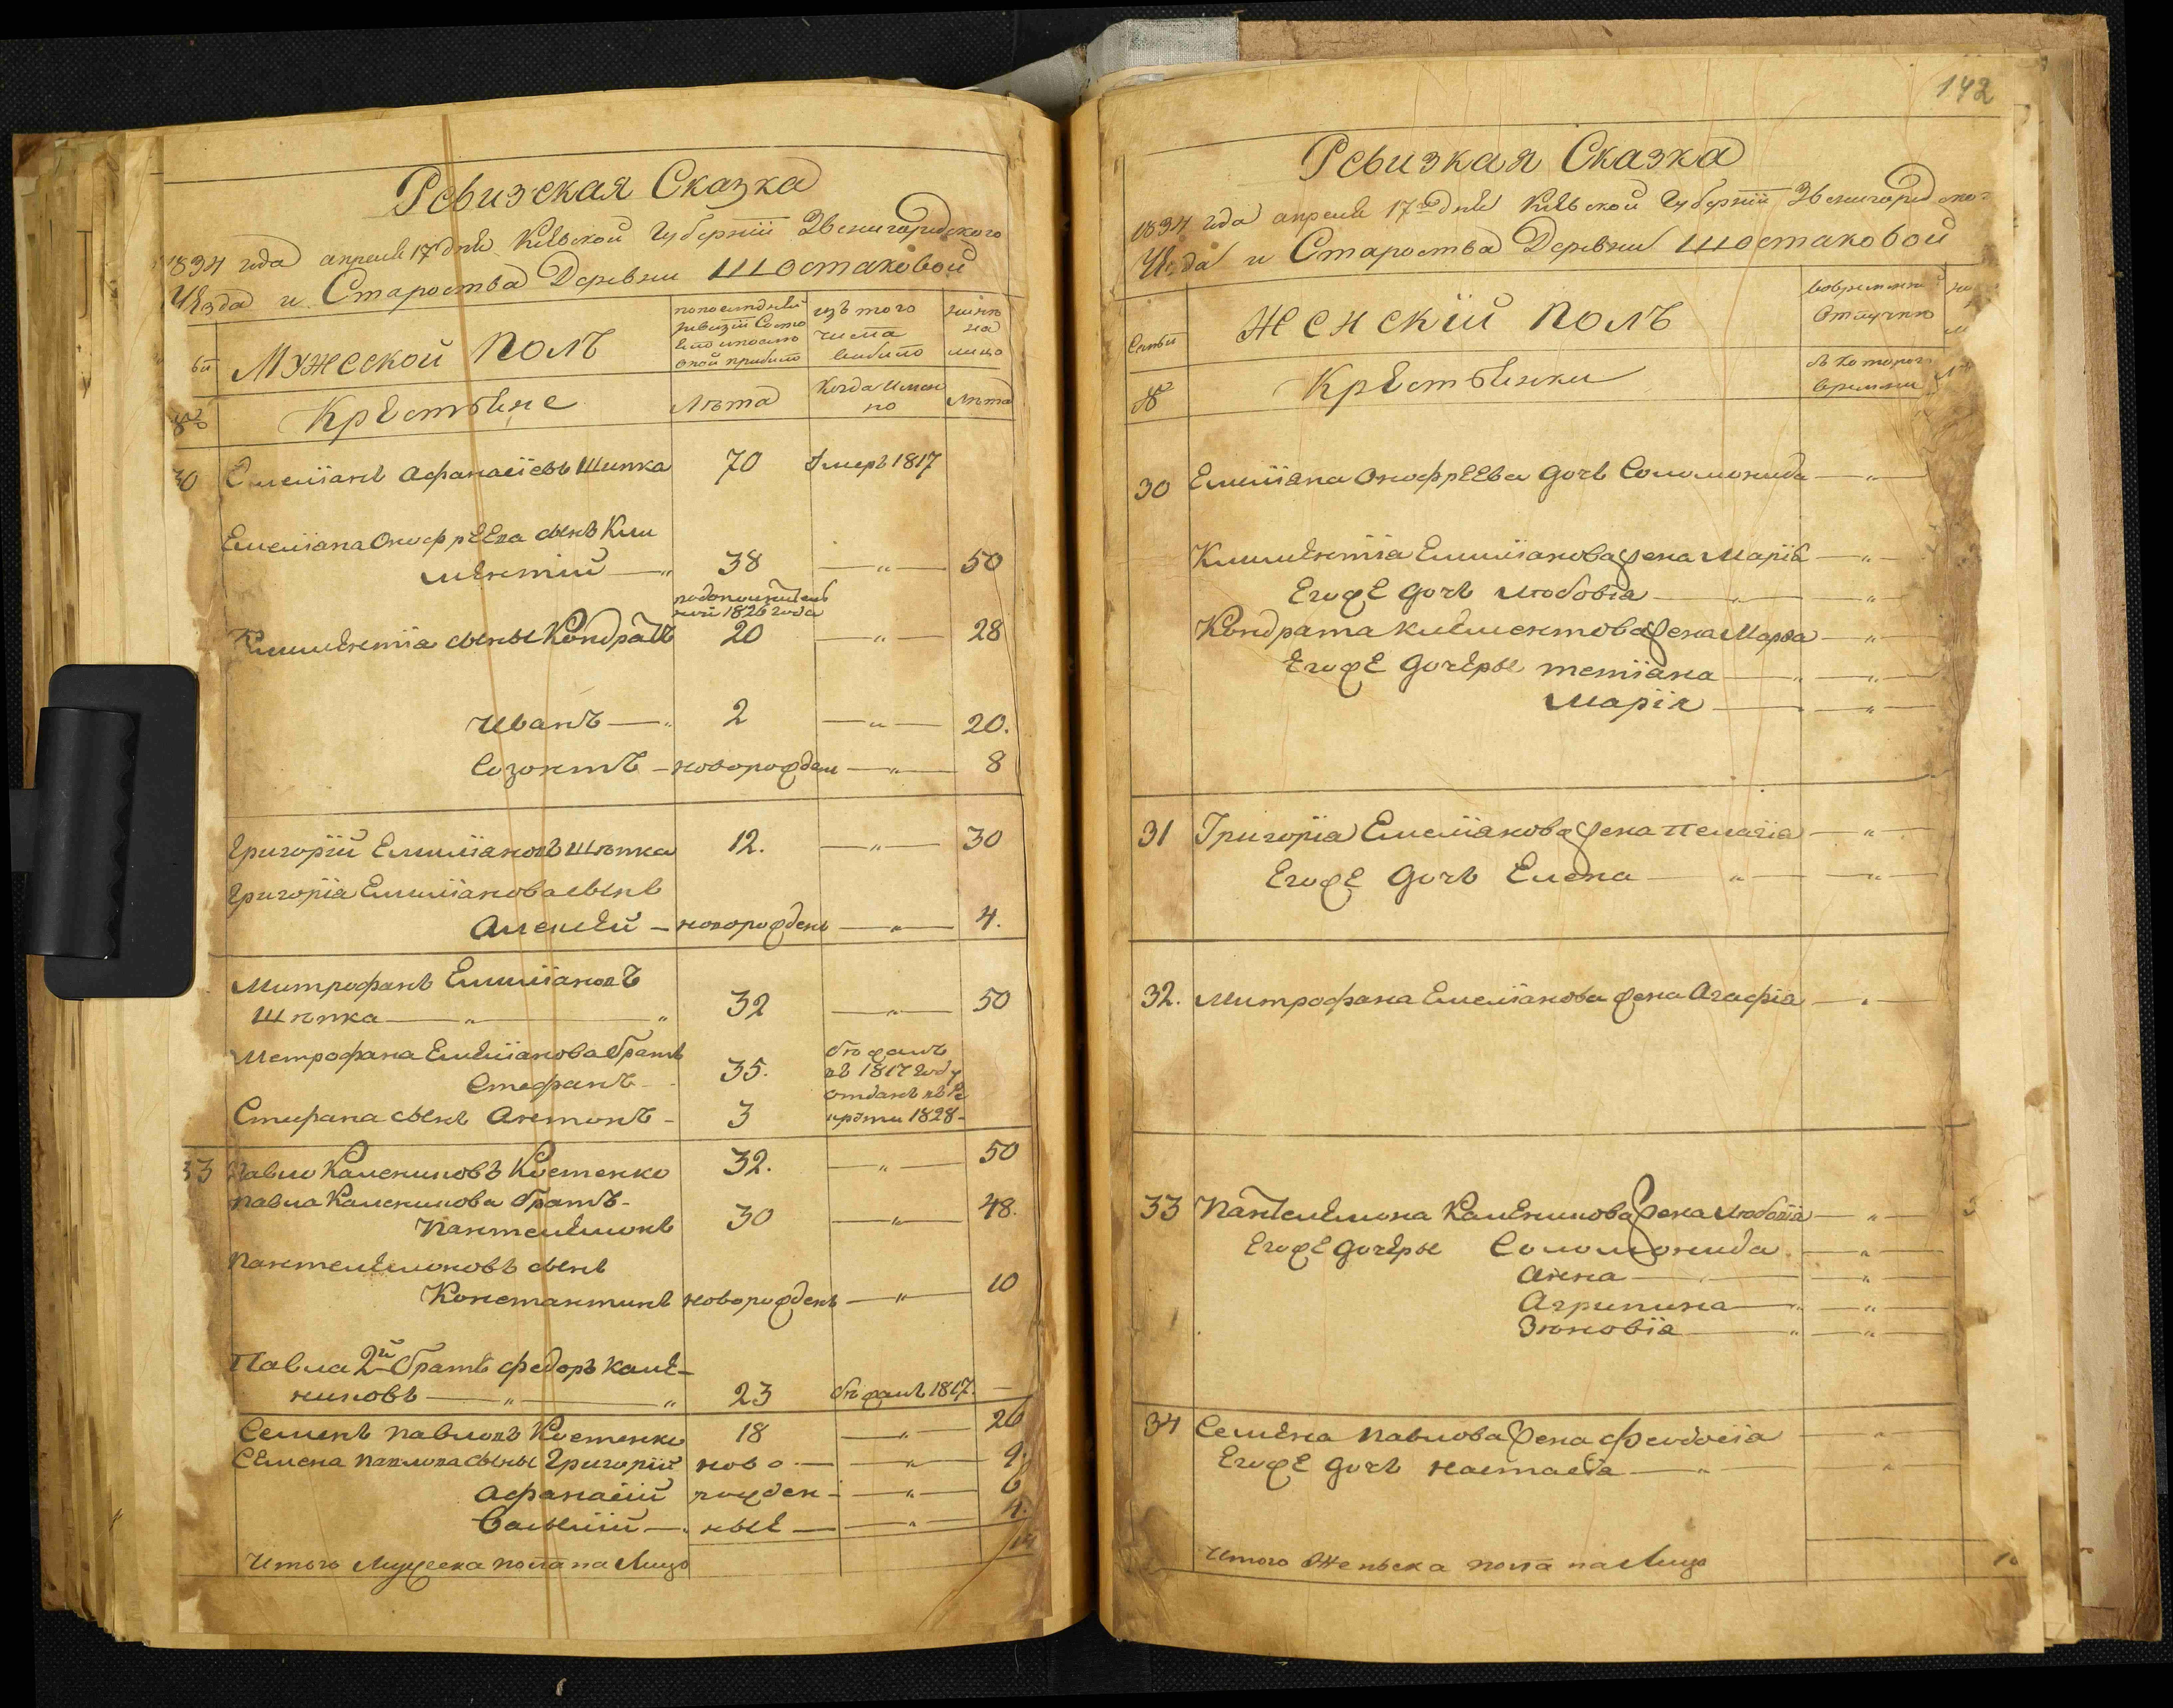 Ревизская Сказка
1834 года апреля 17 дня Киевской Губернiи Звенигородского
Уезда и Староства Деревни Шостаковой
Мужеской полъ
по последней ревизiи Состо
изъ того числа выбыло
ныне на лицо
№
Крестьяне
Лета
Когда имянно
Лета
30 Емелiанъ Афанасiевъ Шипка 70 Умеръ 1817
Емелiана Онофреева сынъ Кли
ментiй — „ 38 — „ — 50
1826 года
Климентiя сыны Кондратъ 20 — „ — 28
Иванъ — „ 2 — „ — 20.
Созонтъ — новорожден — „ — 8
Григорiй Емилiановъ Шпка 12. — „ — 30
Григорiя Емилiанова сынъ
Алексей — новорожденъ — „ — 4.
Митрофанъ Емилiановъ
Шпка — „ — „ 32 — „ — 50
Метрофана Емелiанова братъ
Стефанъ - 35. бежалъ въ 1817 году
Стефана сынъ Антонъ - 3 отданъ въ рекруты 1828 -
33 Павло Калениковъ Костенко 32. — „ — 50
Павла Каленикова братъ -
Пантелемонъ 30 — „ — 48.
Пантелемоновъ сынъ
Константинъ новорожденъ — „ — 10
Павла 2й братъ федоръ кале-
никовъ — „ — „ 23 бежалъ 1817. —
Семенъ Павловъ Костенко 18 — „ — 26
Семена павлова сыны Григорiй ново — — „ — 9.
Афанасiй рожден - — „ — 6
Василiй — . ные — — „ — 4.
Итого Мужеска пола на Лицо
142
Ревизкая Сказка
1834 года апреля 17го дня Киевской Губернiи Звенигородско=
Уезда и Староства Деревни Шостаковой
Семьи
Женскiй полъ
во временной Отлучке
№
Крестьянки
съ которого времени
30 Емилiана Онофреева дочь Соломонида — „ —
Климентiя Емилiанова жена Марiя — „ —
Егоже дочь Любовiя — „ — — „ —
Кондрата климентова жена Марфа — „ —
Егоже дочеры тетiяна — „ — — „ —
Марiя — — „ —
31 Григорiя Емелiанова жена пелагiя — „ —
Егоже дочь Елена — „ — — „ —
32. Митрофана Емелiанова жена Агафiя — „ —
33 Пантелемона Каленикова жена Любовiя — „ —
Егоже дочеры Соломонида — „ —
Анна — — „ —
Агрипина — „ — „ —
Зиновiя — „ — „ —
34 Семена павлова жена Феодосiя — „ —
Егоже дочь настасiя — „ — „ —
Итого Женьска пола на Лицо